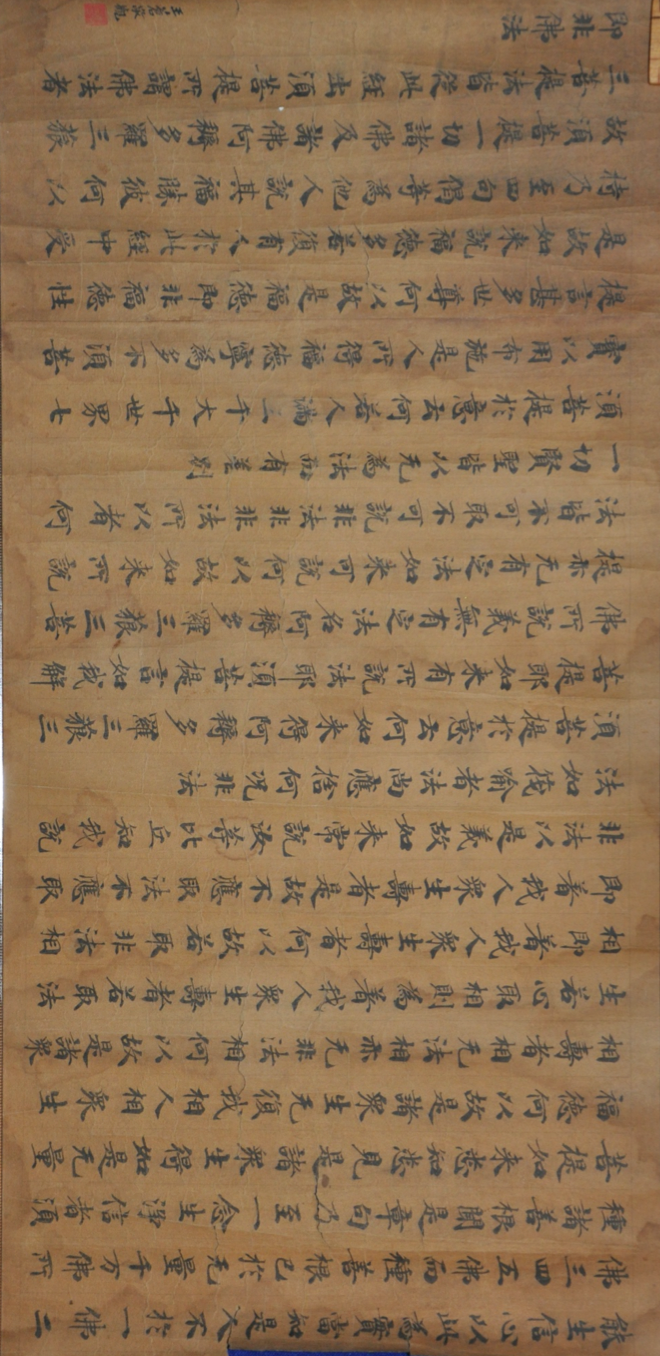 能生信心以此為實當知是人不於一佛二
佛三四五佛而種善根已於无量千万佛所
種諸善根聞是章句乃至一念生淨信者須
菩提如来悉知悉見是諸衆生得如是无量
福德何以故是諸衆生无復我相人相衆生
相壽者相无法相亦无非法相何以故是諸衆
生若心取相則為著我人衆生壽者若取法
相即著我人衆生壽者何以故若取非法相
即著我人衆生壽者是故不應取法不應取
非法以是義故如来常說汝等比丘知我說
法如筏喻者法尚應捨何况非法
須菩提於意云何如来得阿耨多羅三藐三
菩提耶如来有所說法耶須菩提言如我解
佛所說義無有定法名阿耨多羅三藐三菩
提亦无有定法如来可說何以故如来所說
法皆不可取不可說非法非非法所以者何
一切賢聖皆以无為法而有差別
須菩提於意云何若人滿三千大千世界七
寳以用布施是人所得福德寧為多不須菩
提言甚多世尊何以故是福德即非福德性
是故如来說福德多若復有人於此經中受
持乃至四句偈等為他人說其福勝彼何以
故須菩提一切諸佛及諸佛阿耨多羅三藐
三菩提法皆從此經出須菩提所謂佛法者
即非佛法